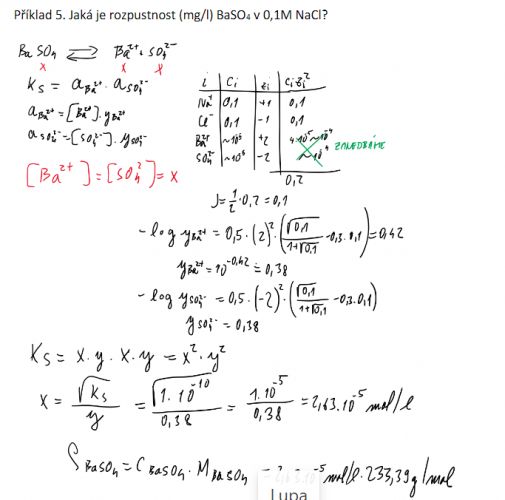 Příklad 5. Jaká je rozpustnost (mg/l) BaSO₄ v 0,1M NaCl?
BaSO₄ ⇌ Ba²⁺ + SO₄²⁻
x x x
Ks = a_Ba²⁺ · a_SO₄²⁻
a_Ba²⁺ = [Ba²⁺] · y_Ba²⁺
a_SO₄²⁻ = [SO₄²⁻] · y_SO₄²⁻
[Ba²⁺] = [SO₄²⁻] = x
i | ci | zi | ci zi²
Na⁺ | 0,1 | +1 | 0,1
Cl⁻ | 0,1 | -1 | 0,1
Ba²⁺ | ~10⁻⁵ | +2 | 4·10⁻⁵ ~10⁻⁴
SO₄²⁻ | ~10⁻⁵ | -2 | ~10⁻⁴
ZANEDBÁME
0,2
J = 1/2 · 0,2 = 0,1
-log y_Ba²⁺ = 0,5 · (2)² · (√0,1/(1+√0,1) - 0,3 · 0,1) = 0,42
y_Ba²⁺ = 10^-0,42 = 0,38
-log y_SO₄²⁻ = 0,5 · (-2)² · (√0,1/(1+√0,1) - 0,3 · 0,1)
y_SO₄²⁻ = 0,38
Ks = x · y · x · y = x² · y²
x = √Ks/y = √(1 · 10⁻¹⁰)/0,38 = 1 · 10⁻⁵/0,38 = 2,63 · 10⁻⁵ mol/l
ρ_BaSO₄ = c_BaSO₄ · M_BaSO₄ = 2,63 · 10⁻⁵ mol/l · 233,39 g/mol
Lupa